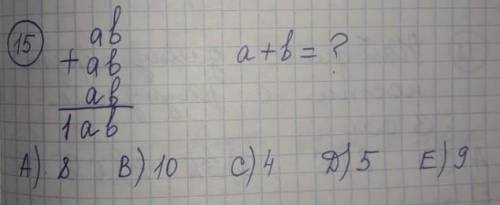 15 ab
+ ab a+b=?
ab
1ab
A) 8 B) 10 C) 4 D) 5 E) 9